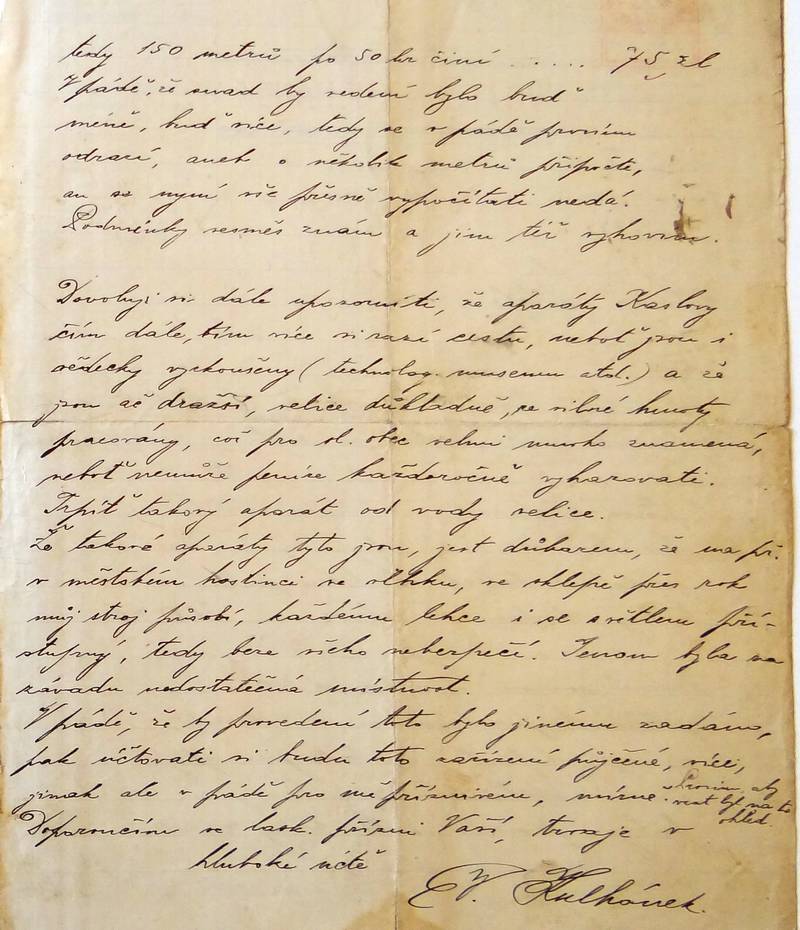 tedy 150 metrů po 50 kr činí ..... 75 zl
V pádě, že snad by vedení bylo buď
méně, buď více, tedy se v pádě prvním
odrazí, aneb o několik metrů připočte,
an se nyní vše přesně vypočítati nedá.
Podmínky vesměs znám a jim též vyhovím.
Dovoluji si dále upozorniti, že aparáty Kaslovy
čím dále, tím více si razí cestu, neboť jsou i
vědecky vyzkoušeny (technolog. museum atd.) a že
jsou ač dražší, velice důkladně, ze silné hmoty
pracovány, což pro sl. obec velmi mnoho znamená,
neboť nemůže peníze každoročně vyhazovati.
Trpíť takový aparát od vody velice.
Že takové aparáty tyto jsou, jest důkazem, že na př.
v městském hostinci ve vlhku, ve sklepě přes rok
můj stroj působí, každému lehce i se světlem pří-
stupný, tedy beze všeho nebezpečí. Jenom byla na
závadu nedostatečná místnost.
V pádě, že by provedení toto bylo jinému zadáno,
pak účtovati si budu toto zařízení půjčené, více,
jinak ale v pádě pro mě příznivém, mírně. Prosím, aby
vzat byl na to
ohled.
Doporoučím se lask. přízni Vaší, trvaje v
hluboké úctě
V. Kulhánek.